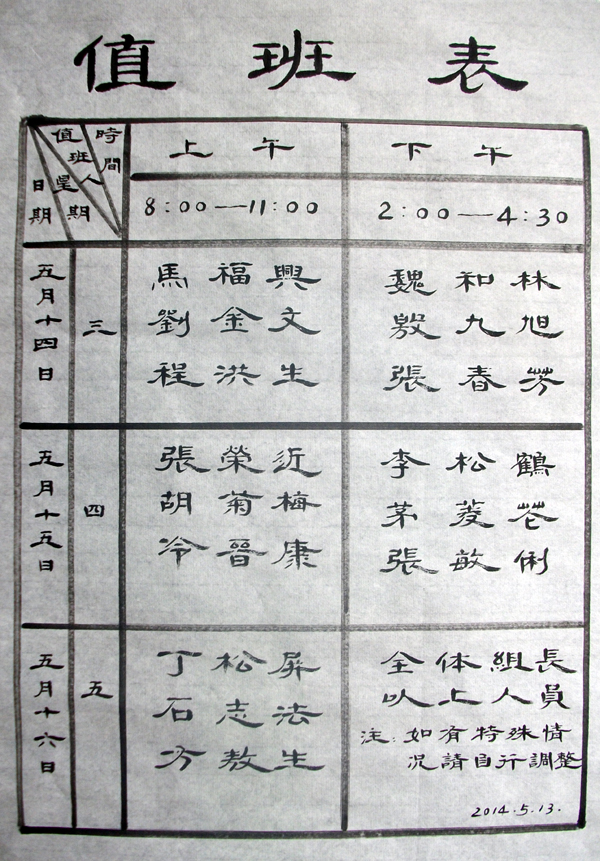 值班表
時間
值班人
星期
日期
上午
下午
8:00—11:00
2:00—4:30
五月十四日
三
馬福興
劉金文
程洪生
魏和林
殷九旭
張春芳
五月十五日
四
張榮近
胡菊梅
冷晉康
李松鶴
茅菱花
張敏俐
五月十六日
五
丁松屏
石志法
方敖生
全体組長
以上人員
注:如有特殊情
况請自行調整
2014.5.13.